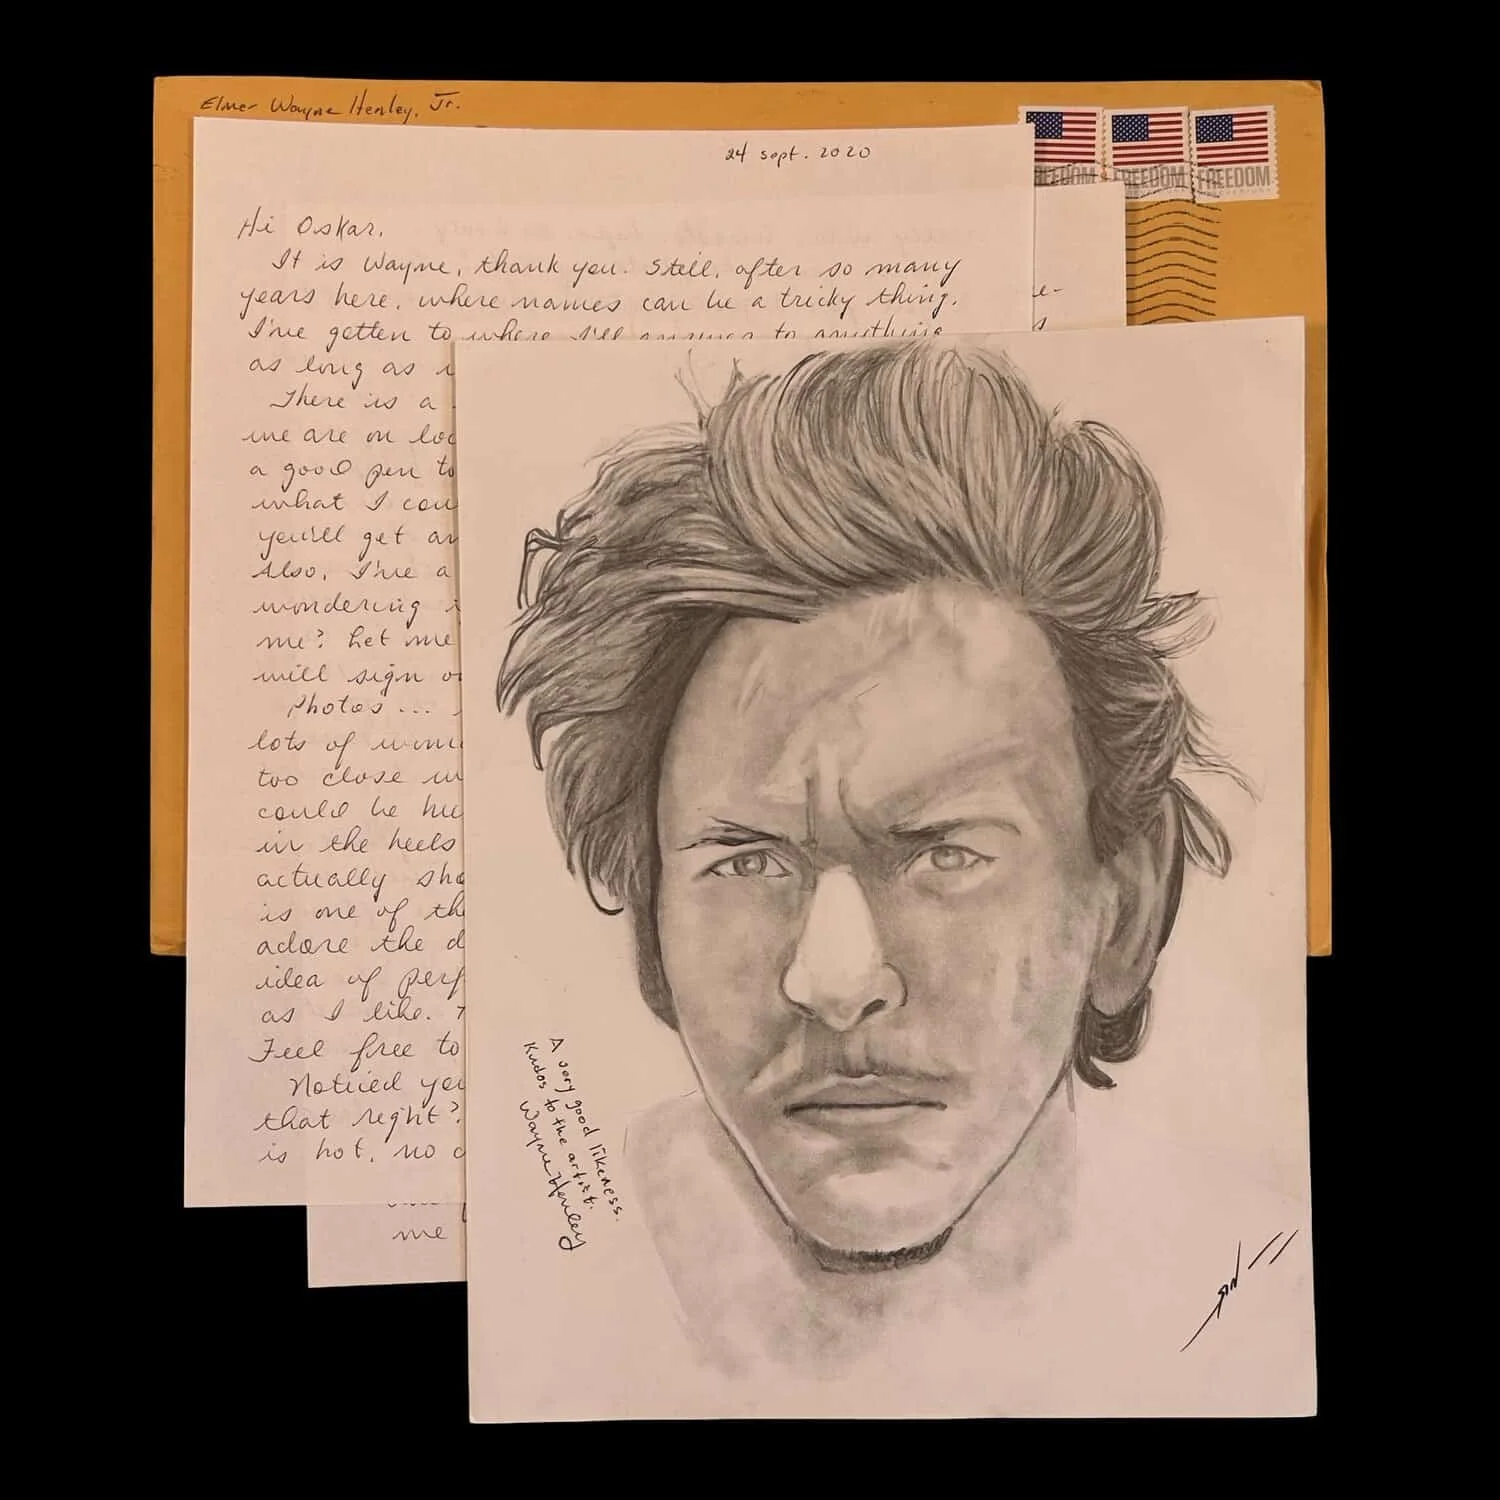 Elmer Wayne Henley, Jr.
FREEDOM FREEDOM FREEDOM
24 sept. 2020
Hi Oskar,
It is Wayne, thank you. Still, after so many
years here, where names can be a tricky thing.
I've gotten to where I'll answer to anything
as long as
There is a
we are on loc
a good pen to
what I cou
you'll get an
Also, I've a
wondering
me? Let me
will sign
Photos ...
lots of
too close
could be
in the heels
actually sho
is one of the
adore the d
idea of perf
as I like.
Feel free to
Noticed you
that right?
is hot, no
me
A very good likeness.
Kudos to the artist.
Wayne Henley